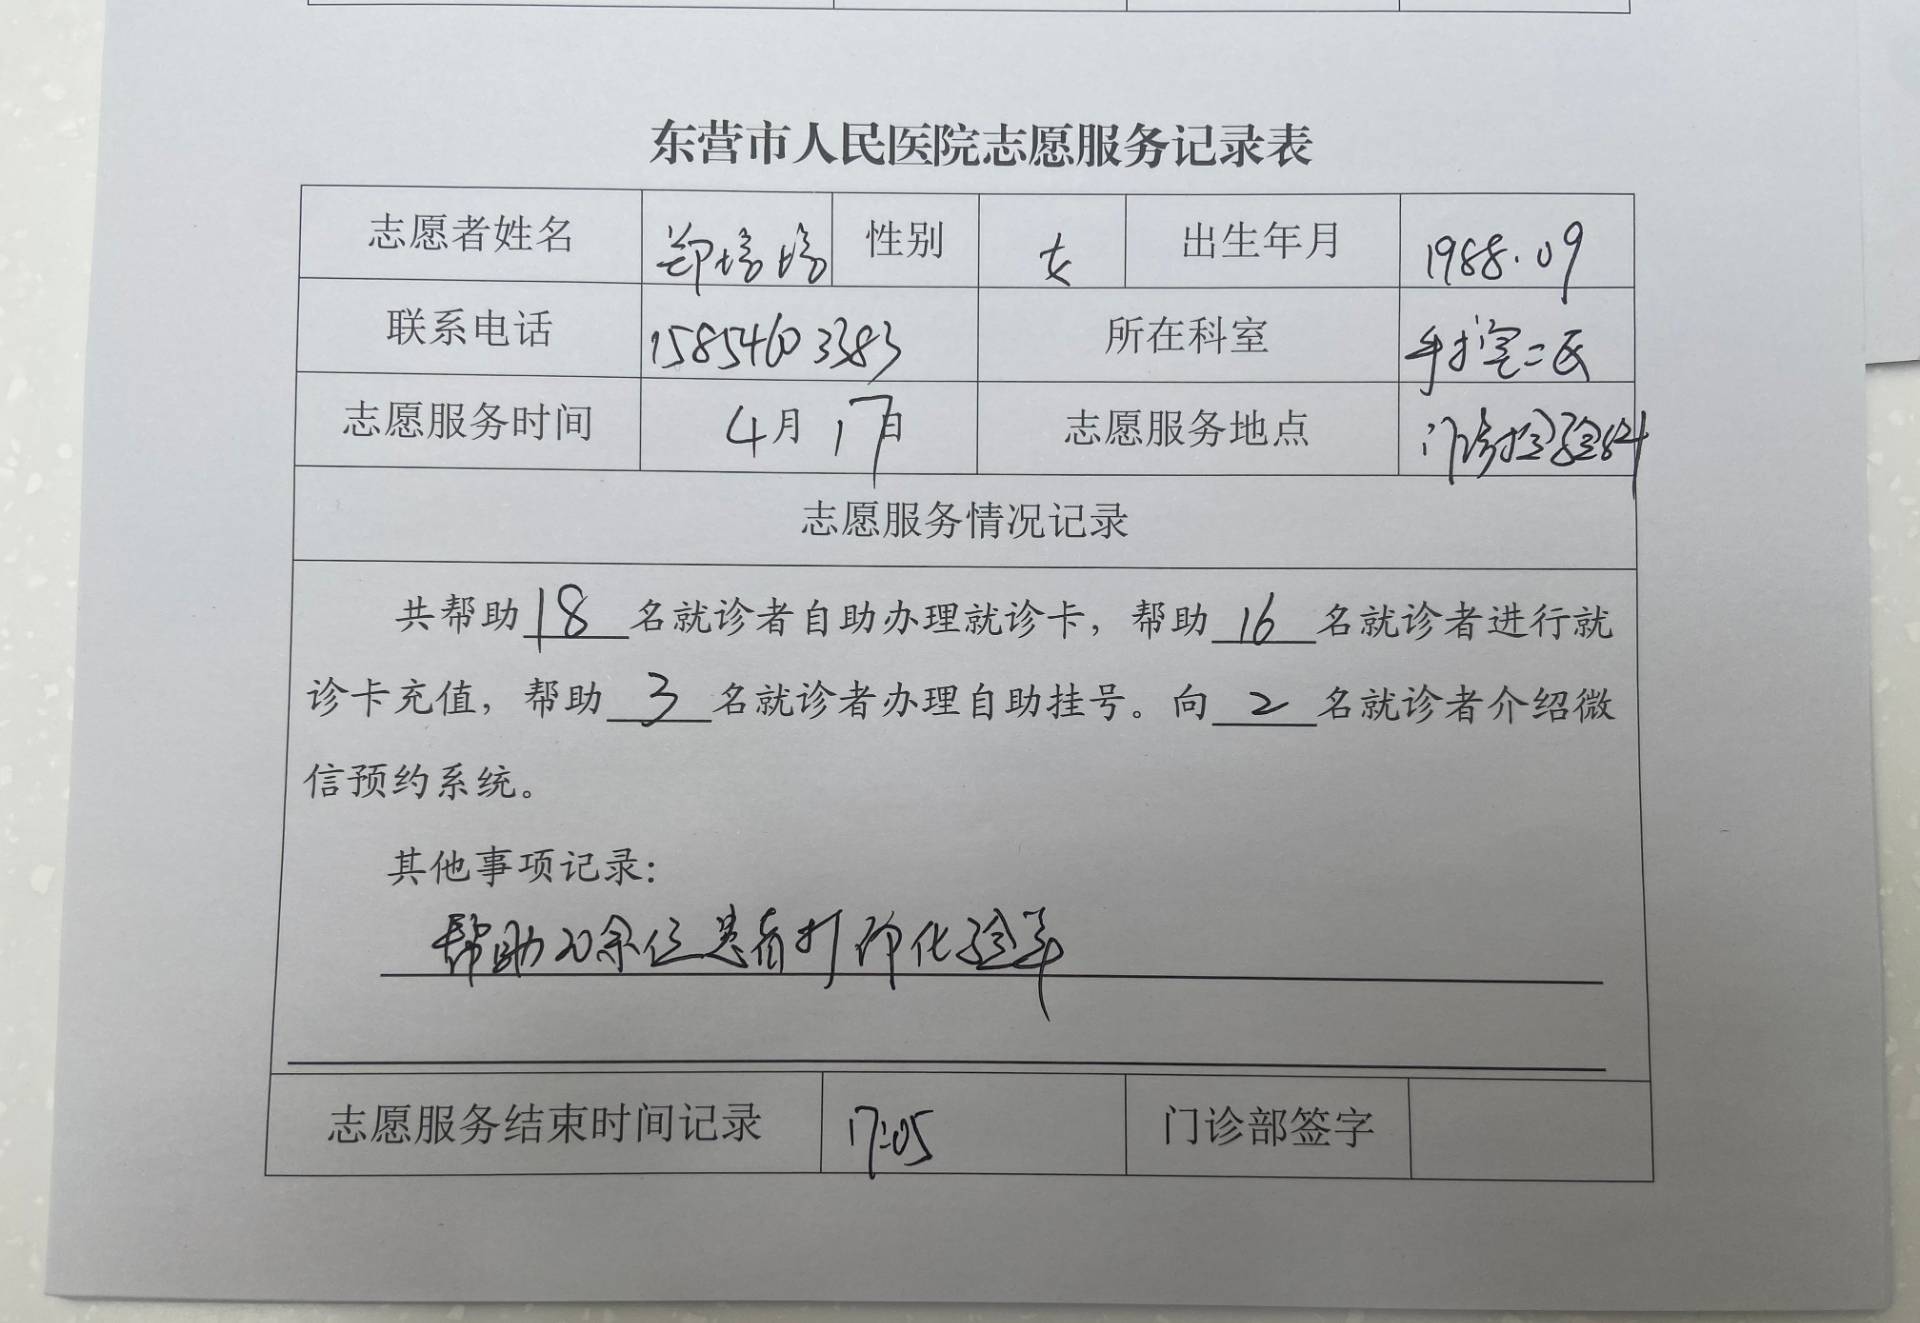 东营市人民医院志愿服务记录表
志愿者姓名 郑 性别 女 出生年月 1988.09
联系电话 15854603383 所在科室 手术室二区
志愿服务时间 4月17日 志愿服务地点 门诊检验科
志愿服务情况记录
共帮助18名就诊者自助办理就诊卡，帮助16名就诊者进行就
诊卡充值，帮助3名就诊者办理自助挂号。向2名就诊者介绍微
信预约系统。
其他事项记录：
帮助20余位患者打印化验单
志愿服务结束时间记录 17:05 门诊部签字